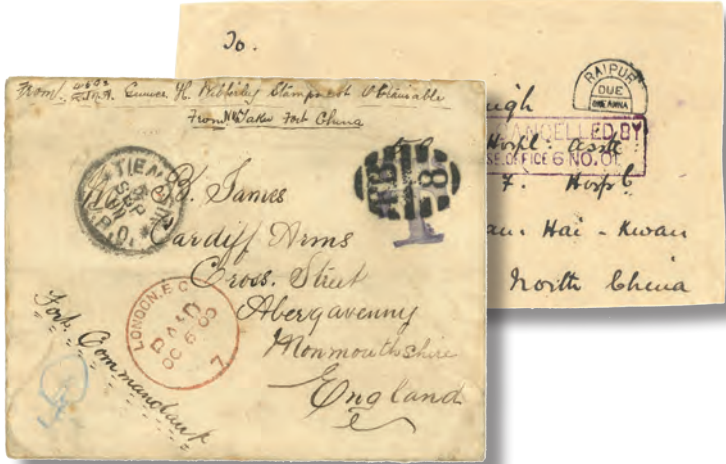 To.
RAIPUR
DUE
ONE ANNA
CANCELLED BY
OFFICE 6 NO. 01.
Hospl. Asstt
7. Hospl
Hai - Kwan
North China
From Gunner. H. Stamps not Obtainable
From Taku Fort China
TIEN
SEP
P.O.
James
Cardiff Arms
Cross. Street
Abergavenny
Monmouthshire
England
LONDON. E.C
PAID
OC 6 00
7
Fort. Commandant
RB
8
T